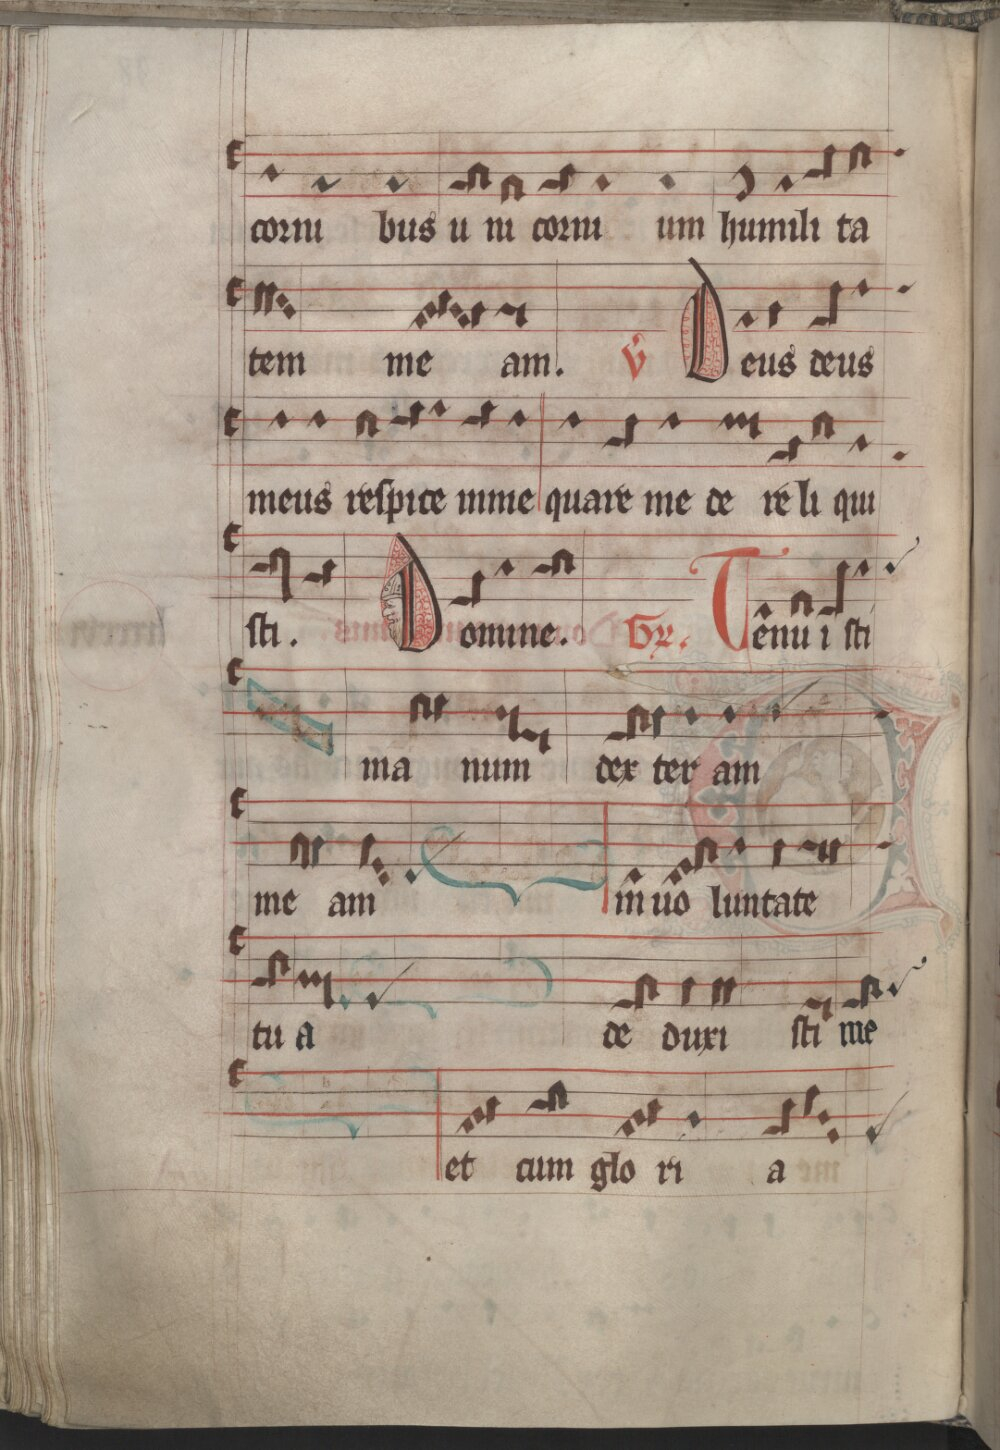 cornu bus u ni cornu um humili ta
tem me am. V Deus deus
meus respice inme quare me de re li qui
sti. Domine. Gr. Tenu i sti
ma num dex ter am
me am in uo luntate
tu a de duxi sti me
et cum glo ri a